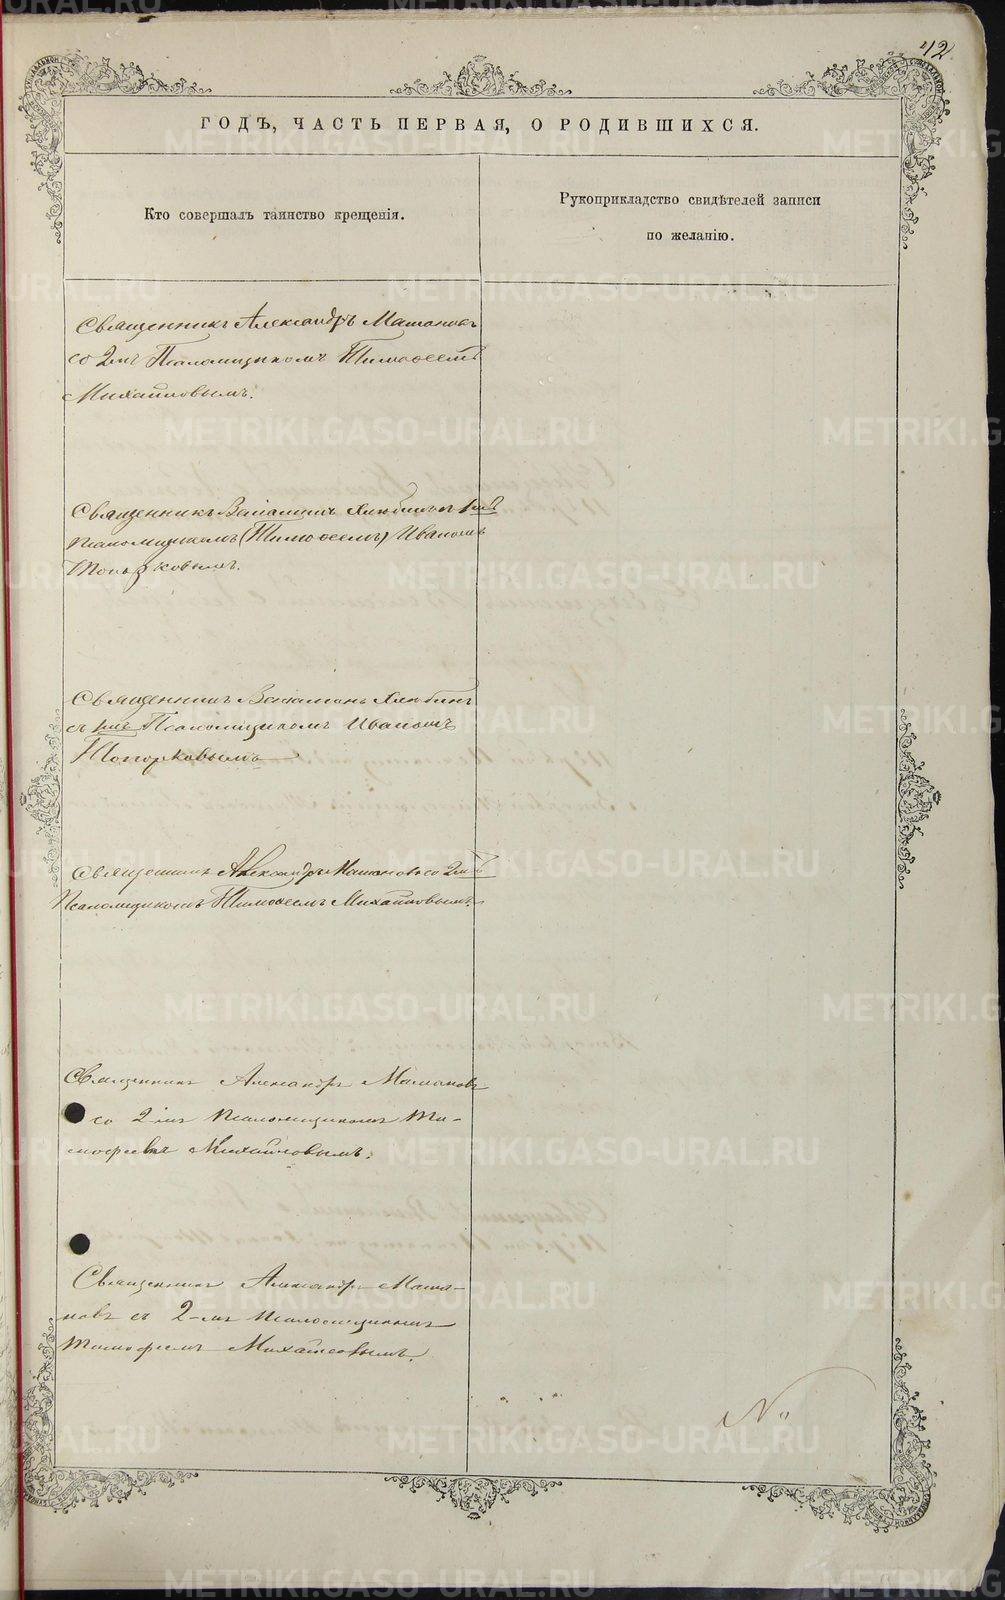 42
ГОДЪ, ЧАСТЬ ПЕРВАЯ, О РОДИВШИХСЯ.
Кто совершалъ таинство крещенія.
Рукоприкладство свидѣтелей записи
по желанію.
Священникъ Александръ Мамоновъ
со 2мъ Псаломщикомъ Тимоѳеемъ
Михайловымъ.
Священникъ Веніаминъ Хлѣбинъ съ 1мъ
псаломщикомъ (Тимоѳеемъ) Иваномъ
Топорковымъ.
Священникъ Веніаминъ Хлѣбинъ
съ 1мъ Псаломщикомъ Иваномъ
Топорковымъ
Священникъ Александръ Мамоновъ со 2мъ
Псаломщикомъ Тимоѳеемъ Михайловымъ.
Священникъ Александръ Мамоновъ
со 2-мъ Псаломщикомъ Ти-
мофеемъ Михайловымъ.
Священникъ Александръ Мамо-
новъ съ 2-мъ псаломщикомъ
Тимофеемъ Михайловымъ.
METRIKI.GASO-URAL.RU